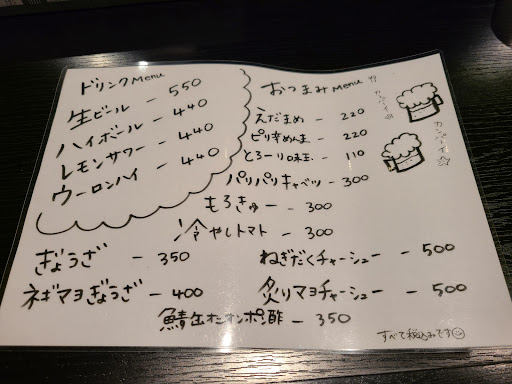 ドリンクMenu
生ビール - 550
ハイボール - 440
レモンサワー - 440
ウーロンハイ - 440
おつまみMenu !!
えだまめ - 220
ピリ辛めんま - 220
とろーり味玉 - 110
パリパリキャベツ - 300
もろきゅー - 300
冷やしトマト - 300
カンパーイ☆
カンパーイ☆
ぎょうざ - 350
ねぎだくチャーシュー - 500
ネギマヨぎょうざ - 400
炙りマヨチャーシュー - 500
鯖缶オニオンポン酢 - 350
すべて税込みです☺